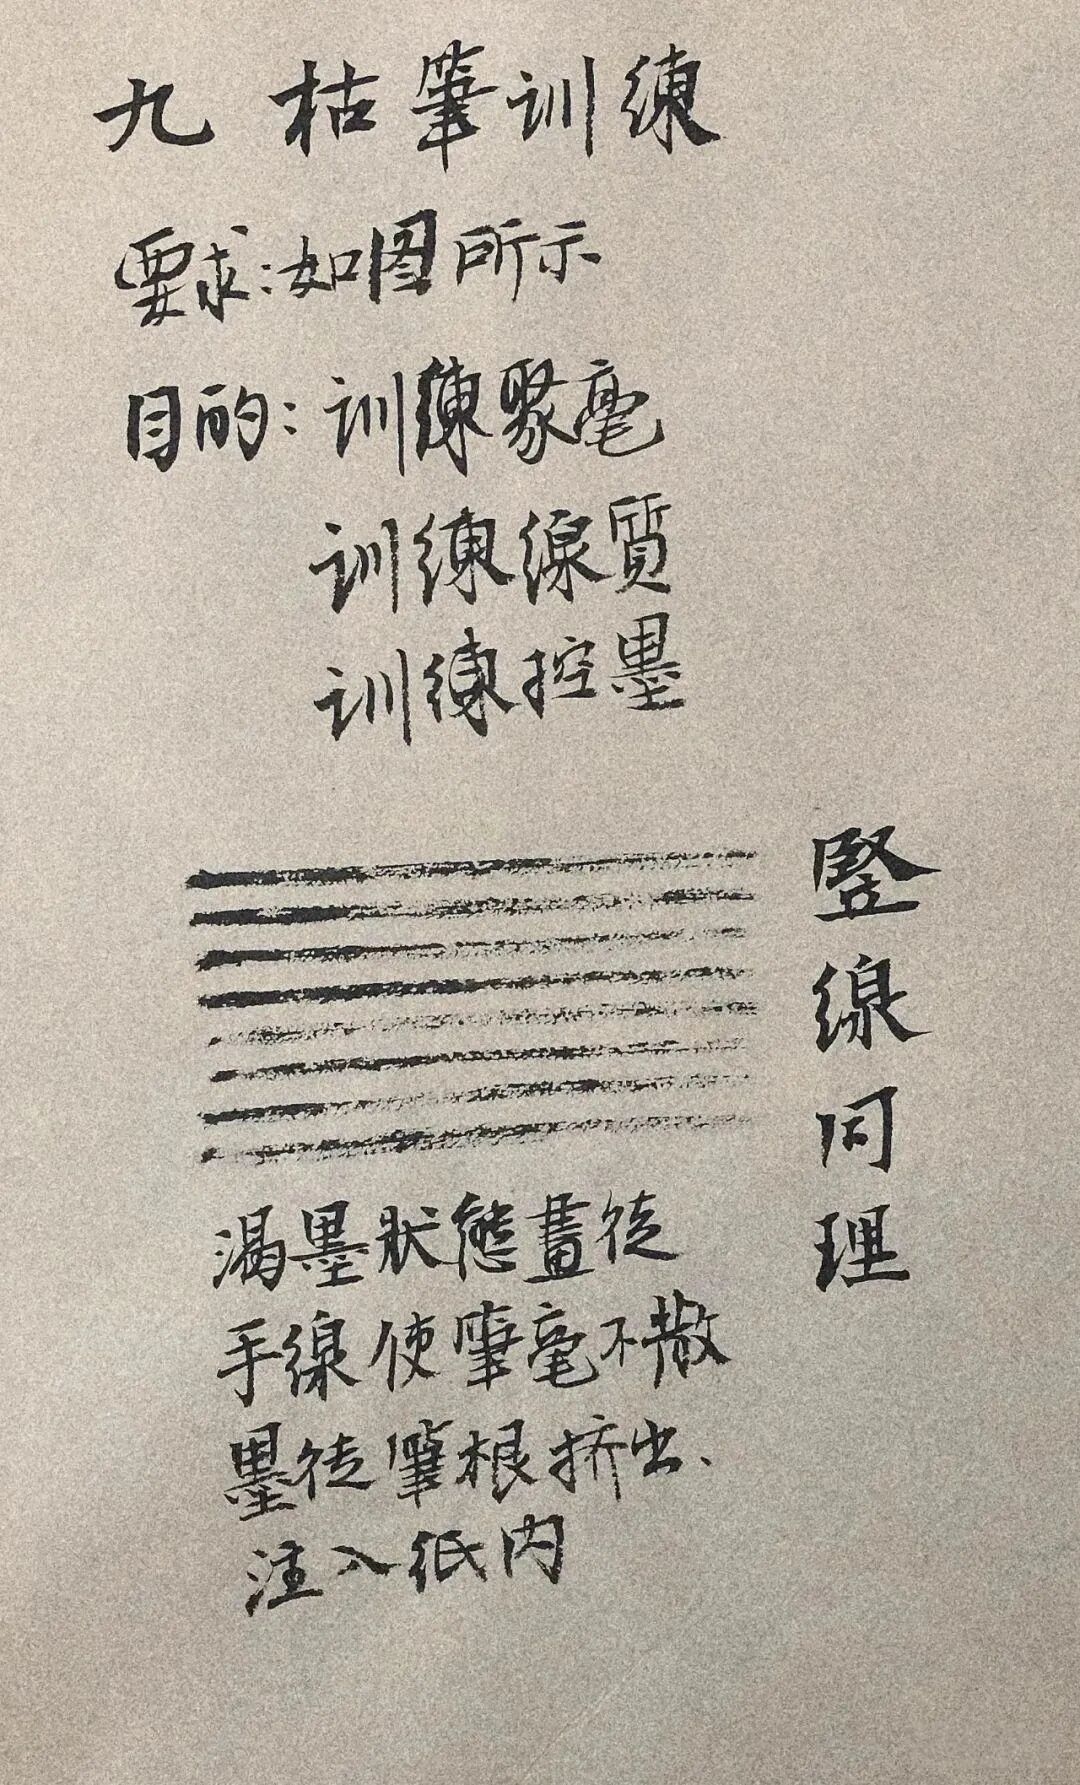 九 枯筆训練
要求:如图所示
目的:训練聚毫
训練線質
训練控墨
竪線同理
渴墨狀態畫徒
手線使筆毫不散
墨從筆根挤出、
注入纸内